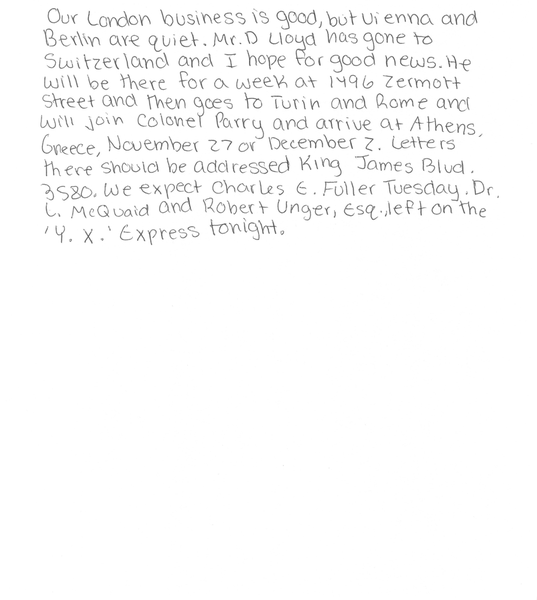 Our London business is good, but Vienna and
Berlin are quiet. Mr. D Lloyd has gone to
Switzerland and I hope for good news. He
will be there for a week at 1496 Zermott
Street and then goes to Turin and Rome and
will join Colonel Parry and arrive at Athens,
Greece, November 27 or December 2. Letters
there should be addressed King James Blvd.
3580. We expect Charles E. Fuller Tuesday. Dr.
L. McQuaid and Robert Unger, Esq., left on the
'Y. X.' Express tonight.